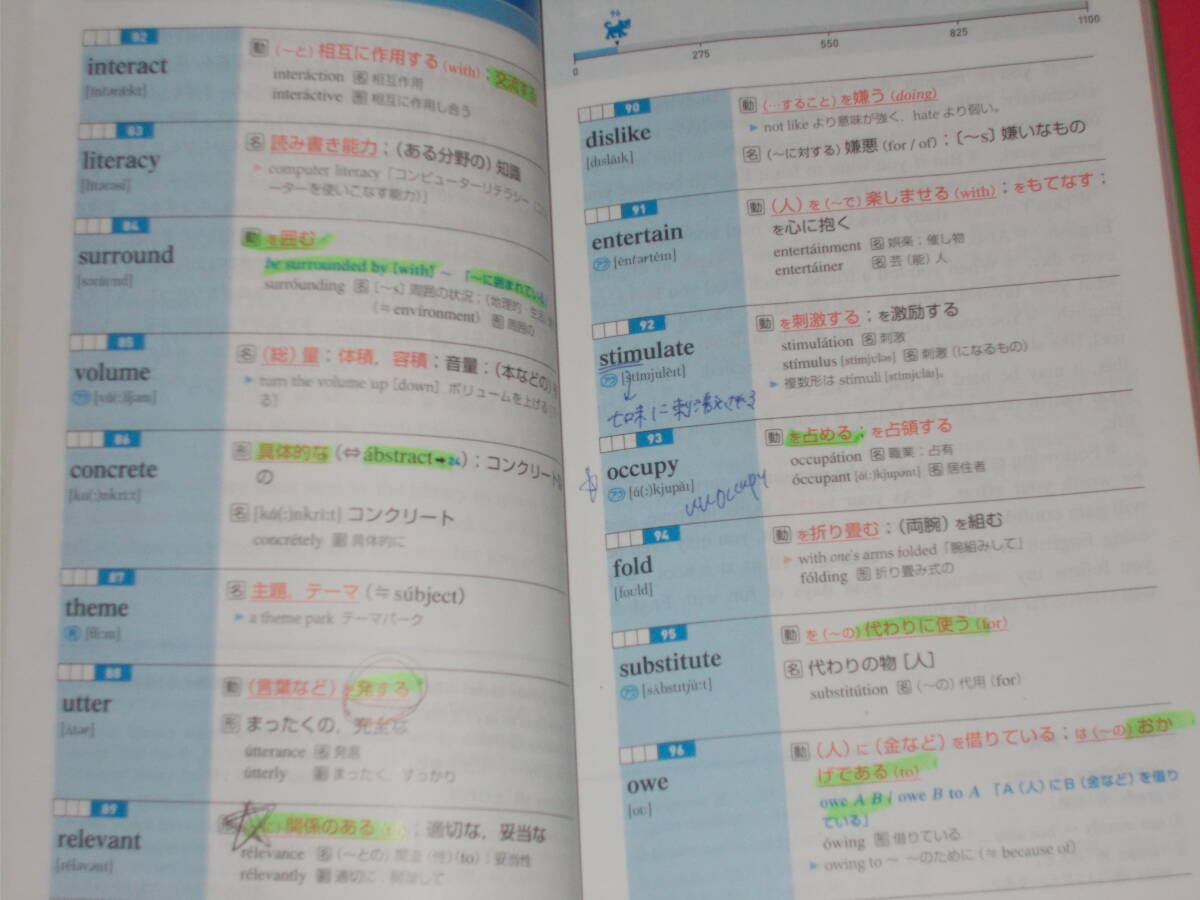 82
interact
動 (〜と) 相互に作用する (with) ; 交流する
interáction 名 相互作用
interáctive 形 相互に作用し合う
83
literacy
名 読み書き能力 ; (ある分野の) 知識
computer literacy「コンピューターリテラシー
ーターを使いこなす能力)」
84
surround
動 を囲む
be surrounded by [with] 〜 「〜に囲まれている」
surróunding 名 [〜s] 周囲の状況 ; (地理的
(≒ environment) 形 周囲の
85
volume
名 (総) 量 ; 体積, 容積 ; 音量 ; (本などの)
turn the volume up [down] ボリュームを上げる
る]
86
concrete
[kɑ(:)nkríːt]
形 具体的な (⇔ ábstract➡24) ; コンクリート
の
名 [kɑ́(:)nkriːt] コンクリート
concrétely 副 具体的に
87
theme
[θiːm]
名 主題, テーマ (≒ súbject)
a theme park テーマパーク
88
utter
[ʌ́tər]
動 (言葉など) を発する
形 まったくの, 完全な
útterance 名 発言
útterly 副 まったく, すっかり
89
relevant
関係のある ; 適切な, 妥当な
rélevance 名 (〜との) 関連 (性) (to) ; 妥当性
rélevantly 副 適切に, 関連して
96
0
275
550
825
1100
90
dislike
[dɪsláɪk]
動 (…すること) を嫌う (doing)
not like より意味が強く, hate より弱い。
名 (〜に対する) 嫌悪 (for / of) ; [〜s] 嫌いなもの
91
entertain
アク [èntərtéɪn]
動 (人) を (〜で) 楽しませる (with) ; をもてなす ;
を心に抱く
entertáinment 名 娯楽 ; 催し物
entertáiner 名 芸 (能) 人
92
stimulate
アク [stímjulèɪt]
動 を刺激する ; を激励する
stimulátion 名 刺激
stímulus [stímjuləs] 名 刺激 (になるもの)
複数形は stímuli [stímjulàɪ]。
七味に刺激される
93
occupy
アク [ɑ́(:)kjupàɪ]
occupy
動 を占める ; を占領する
occupátion 名 職業 ; 占有
óccupant [ɑ́(:)kjupənt] 名 居住者
94
fold
[foʊld]
動 を折り畳む ; (両腕) を組む
with one's arms folded「腕組みして」
fólding 形 折り畳み式の
95
substitute
アク [sʌ́bstɪtjùːt]
動 を (〜の) 代わりに使う (for)
名 代わりの物 [人]
substitútion 名 (〜の) 代用 (for)
96
owe
[oʊ]
動 (人) に (金など) を借りている ; は (〜の) おか
げである (to)
owe A B / owe B to A 「A (人) に B (金など) を借り
ている」
ówing 形 借りている
owing to 〜 〜のために (≒ because of)